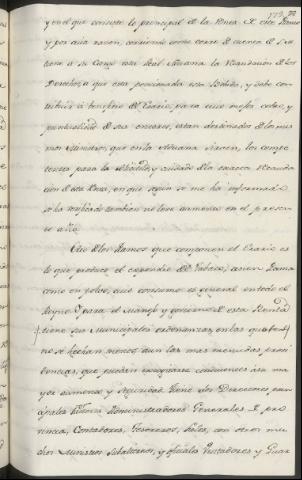 y en el que consiste lo principal de la Renta de este Ramo
y por cuia razon, corriendo como corre de cuenta de S. M.
tiene a su Cargo esta Real Aduana la Recaudacion de los
Derechos, a que esta pensionada esta Bebida, y debe con-
tribuir a beneficio del Erario, para cuio mejor celo, y
puntualidad de sus enteros, estan destinados los mis-
mos Ministros, que en la Aduana sirven, los compe-
tentes para la y cuidado de la exacta Recauda-
cion de esta Renta, en que segun se me ha informado
se ha verificado tambien no leve aumento en el presen-
te año.
Otro de los Ramos que componen el Erario es
lo que produce el expendio del Tabaco, asi en Rama
como en polvo, cuio consumo es general en todo el
Reyno y para el manejo y govierno de esta Renta
tiene sus Municipales ordenanzas, en las que
no se hechan menos aun las mas menudas provi-
dencias, que puedan imaginarse conducentes a su ma-
yor aumento y seguridad. Tiene sus Direcciones
Administradores Generales de pro-
vincia, Contadores, Tesoreros, Fieles, con otros mu-
chos Ministros subalternos, y oficiales Visitadores y Guar